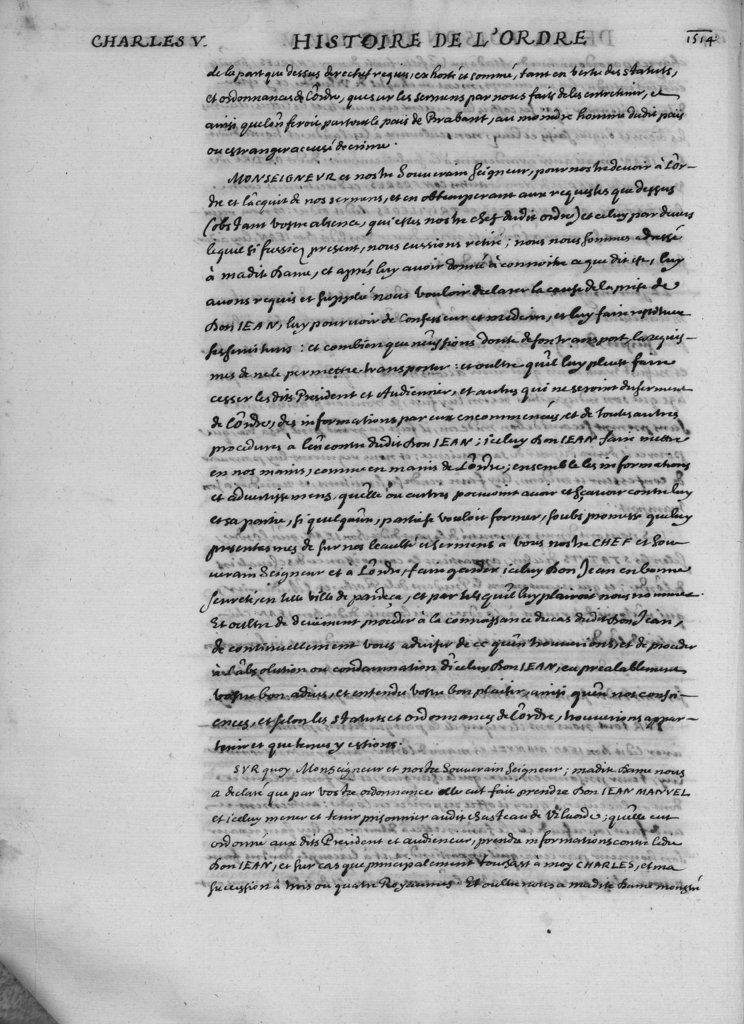 CHARLES V. HISTOIRE DE L'ORDRE 1514
de la part que dessus derechef requis, exhorté et sommé, tant en vertu des statuts,
et ordonnances de L'ordre, que sur les sermens par nous fais de les entretenir, et
ainsi que l'on feroit par tout le païs de Brabant, au moindre homme dudit païs
ou estranger accusé de crime.
MONSEIGNEUR et nostre Souverain Seigneur, pour nostre devoir à L'or-
dre et l'acquit de nos sermens, et en obtemperant aux requestes que dessus
(obstant vostre absence, qui estes nostre chef dudit ordre) et celuy par devers
lequel si fussiez present, nous eussions retiré; nous nous sommes adressé
à madite Dame, et aprés luy avoir donné à connoitre ce que dit est, luy
avons requis et supplié nous vouloir declarer la cause de la prise de
Don JEAN, luy pourvoir de Confesseur et medecin, et luy faire restituer
ses serviteurs: et combien que n'eussions doute de son transport, la requis-
mes de ne le permettre transporter: et oultre qu'il luy pleust faire
cesser lesdits President et Audiencier, et autres qui ne seroint du serment
de L'ordre, des informations par eux encommencées, et de toutes autres
procedures à l'encontre dudit Don JEAN; iceluy Don JEAN faire mettre
en nos mains, comme en mains de L'ordre; ensemble les informations
et advertissemens, qu'elle ou autres pouvoint avoir et sçavoir contre luy
et sa partie, si quelqu'un, partie se vouloit former, soubs promesse que luy
presentasmes de sur nos leaulté et serment à vous nostre CHEF et Sou-
verain Seigneur et à L'ordre, faire garder iceluy Don Jean en bonne
seureté, en telle ville de pardeça, et par tels qu'il luy plairoit nous nommer.
Et oultre de deuement proceder à la connoissance du cas dudit Don Jean,
de continuellement vous adviser de ce qu'en trouverions, et de proceder
à l'absolution ou condamnation d'iceluy Don JEAN, eu prealablement
vostre bon advis, et entendu vostre bon plaisir, ainsi qu'en nos consci-
ences, et selon les statuts et ordonnances de L'ordre, trouverions appar-
tenir et que tenus y estions.
SUR quoy, Monseigneur et nostre Souverain Seigneur; madite Dame nous
a declaré que par vostre ordonnance elle eut fait prendre Don JEAN MANUEL
et iceluy mener et tenir prisonnier audit Chasteau de Vilvorde; qu'elle eut
ordonné auxdits President et audiencier, prendre informations contre ledit
Don JEAN, et sur cas que principalement touchast à moy CHARLES, et ma
succession à trois ou quatre Royaumes. Et oultre nous a madite Dame monstré